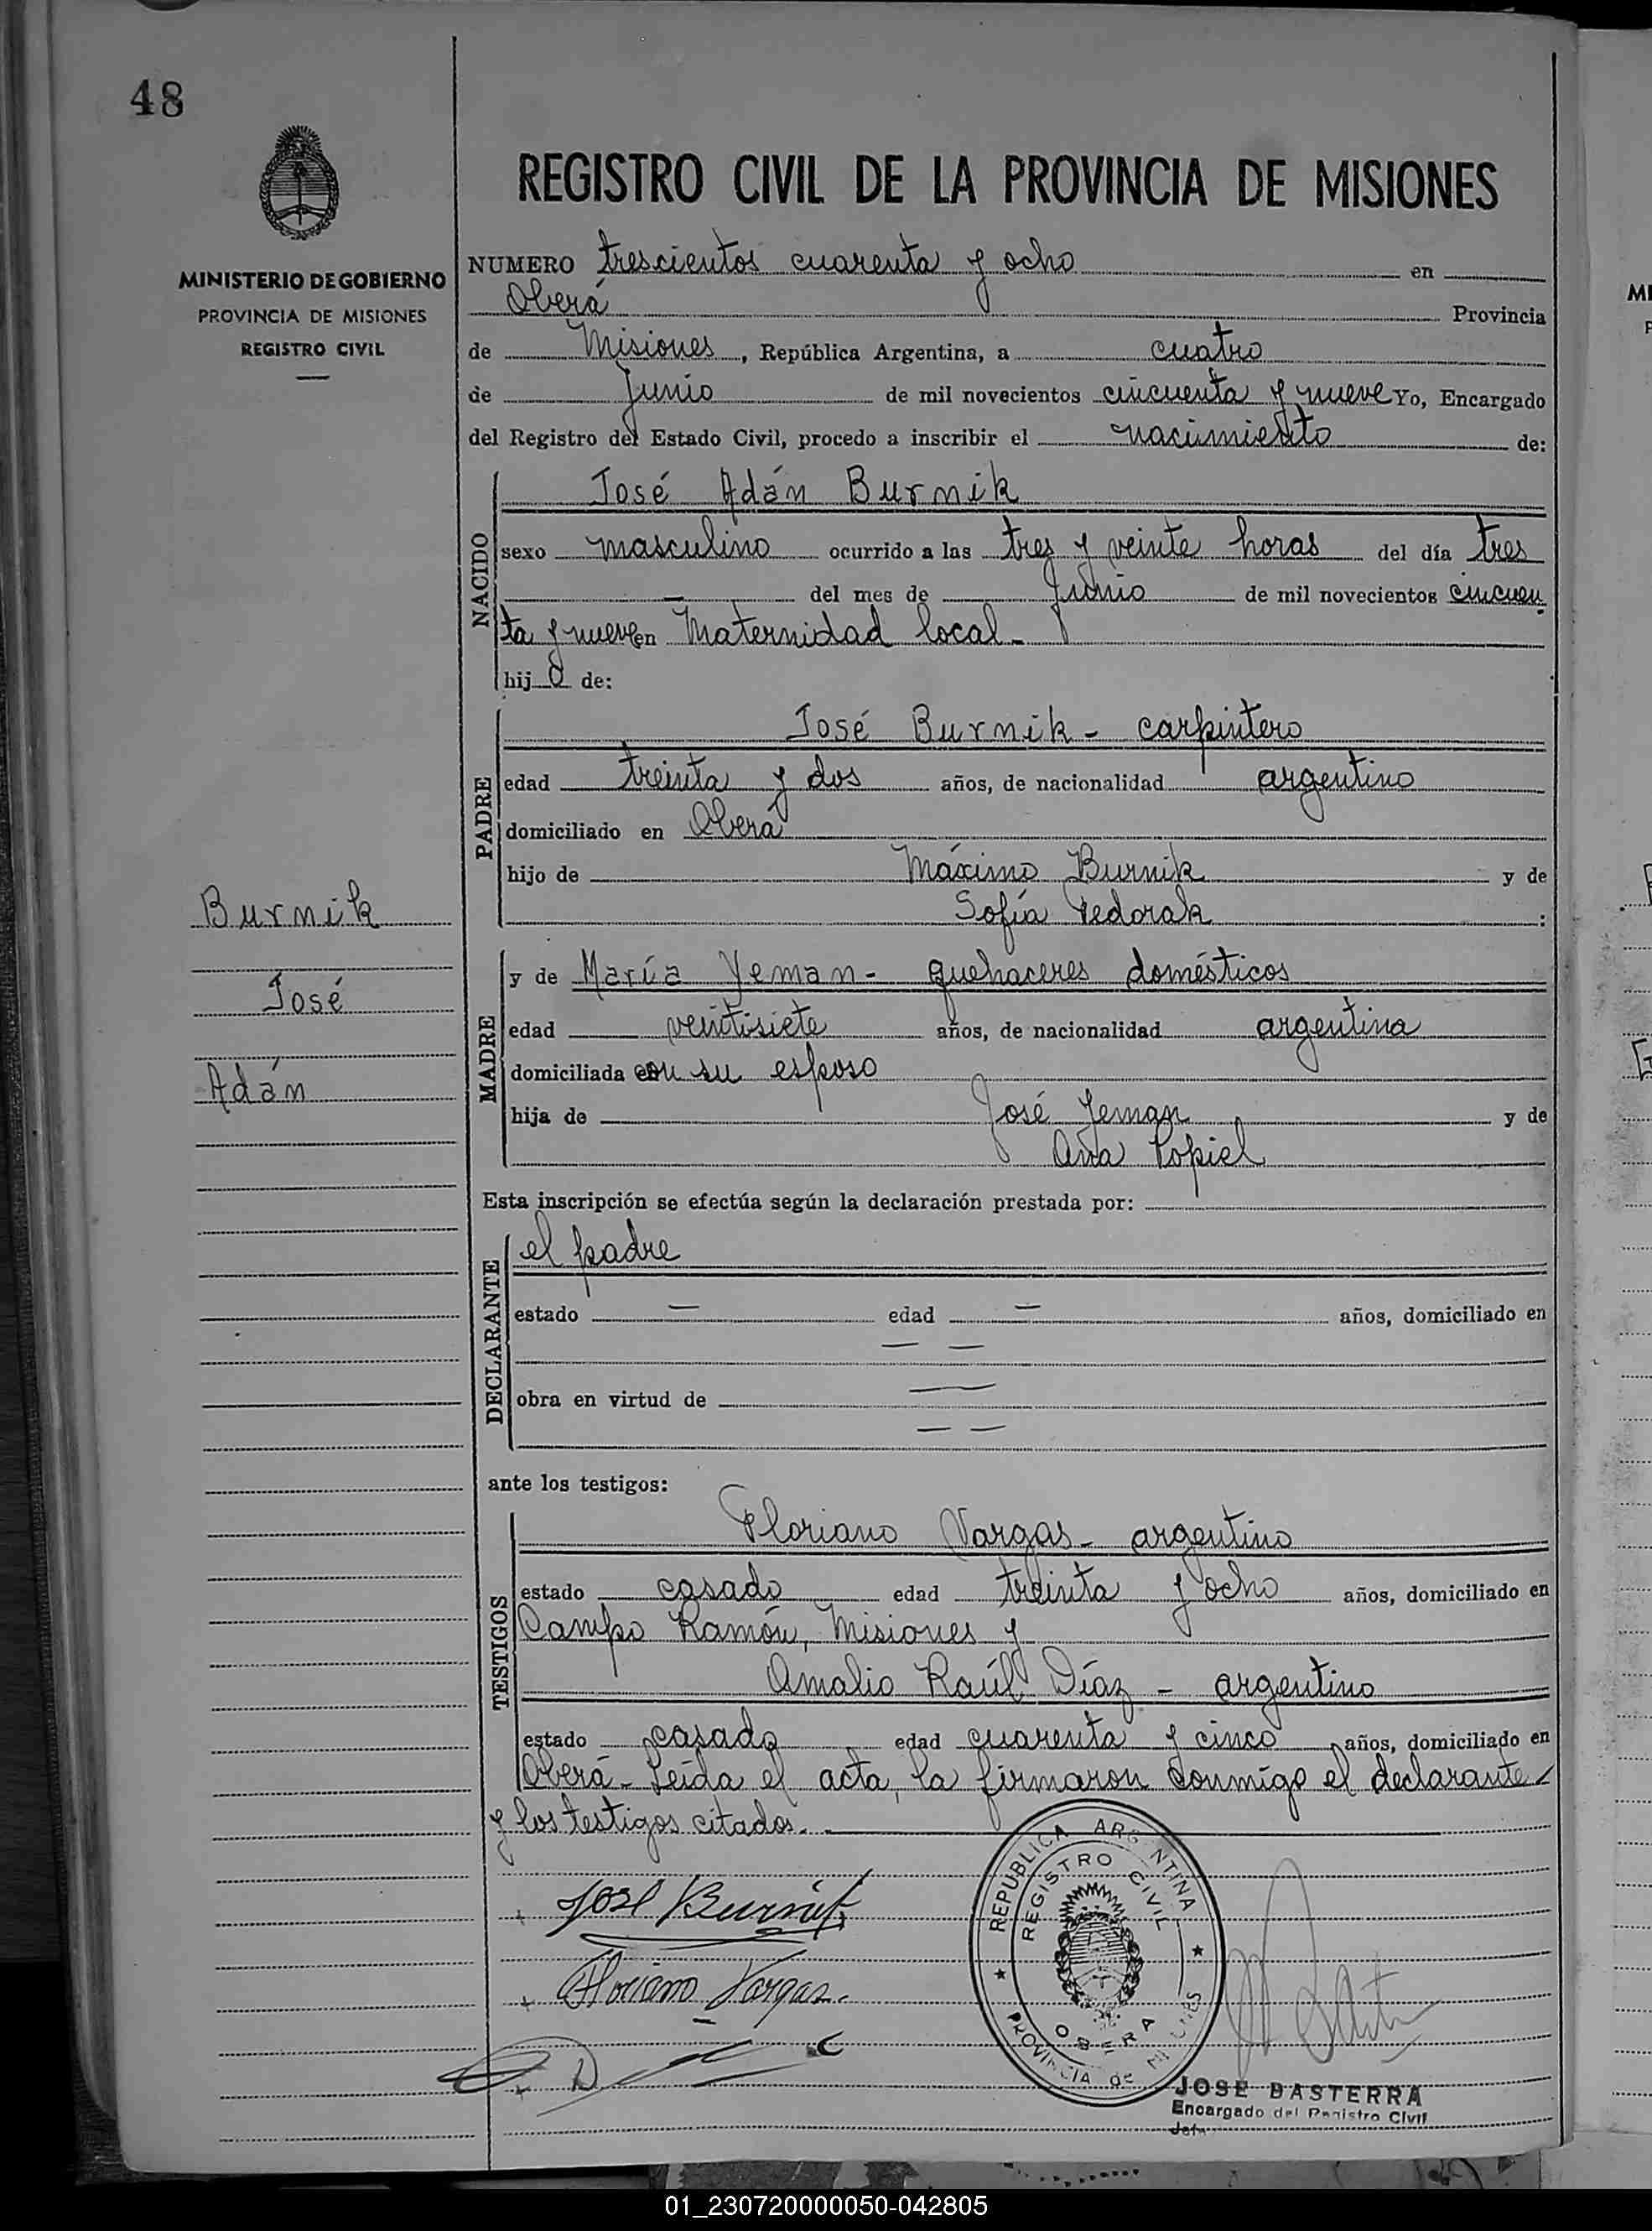 48
REGISTRO CIVIL DE LA PROVINCIA DE MISIONES
MINISTERIO DE GOBIERNO
PROVINCIA DE MISIONES
REGISTRO CIVIL
NUMERO trescientos cuarenta y ocho en
Oberá Provincia
de Misiones, República Argentina, a cuatro
de Junio de mil novecientos cincuenta y nueve Yo, Encargado
del Registro del Estado Civil, procedo a inscribir el nacimiento de:
NACIDO
José Adán Burnik
sexo masculino ocurrido a las tres y veinte horas del día tres
— del mes de Junio de mil novecientos cincuen
ta y nueve en Maternidad local -
hijo de:
PADRE
José Burnik - carpintero
edad treinta y dos años, de nacionalidad argentino
domiciliado en Oberá
hijo de Máximo Burnik y de
Sofía Fedorak :
Burnik
José
Adán
MADRE
y de María Yeman - quehaceres domésticos
edad veintisiete años, de nacionalidad argentina
domiciliada con su esposo
hija de José Jeman y de
Ana Popiel
Esta inscripción se efectúa según la declaración prestada por:
DECLARANTE
el padre
estado — edad — años, domiciliado en
— —
obra en virtud de — —
— —
ante los testigos:
TESTIGOS
Floriano Vargas - argentino
estado casado edad treinta y ocho años, domiciliado en
Campo Ramón, Misiones y
Amalio Raúl Díaz - argentino
estado casado edad cuarenta y cinco años, domiciliado en
Oberá - Leída el acta, la firmaron conmigo el declarante
y los testigos citados. -
José Burnik
Floriano Vargas.
REPUBLICA ARGENTINA
REGISTRO CIVIL
OBERA
PROVINCIA DE MISIONES
JOSE BASTERRA
Encargado del Registro Civil
01_230720000050-042805